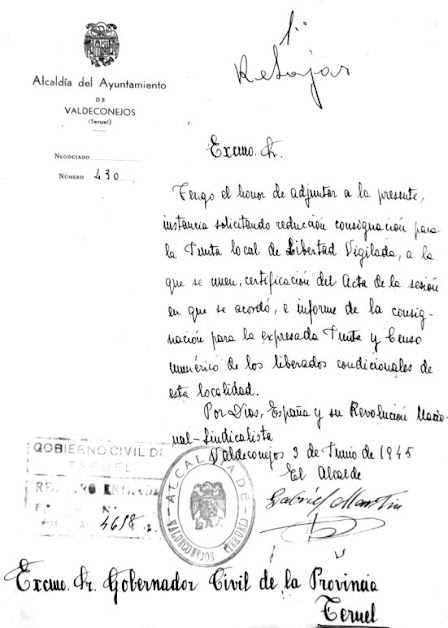 1º
Rebajar
Alcaldía del Ayuntamiento
DE
VALDECONEJOS
(Teruel)
NEGOCIADO
NÚMERO 430
Excmo. Sr.
Tengo el honor de adjuntar a la presente,
instancia solicitando reducción consignación para
la Junta local de Libertad Vigilada, a la
que se unen, certificación del Acta de la sesión
en que se acordó, e informe de la consig-
nación para la expresada Junta y Censo
numérico de los liberados condicionales de
esta localidad.
Por Dios, España y su Revolución Nacio-
nal-Sindicalista
Valdeconejos 3 de Junio de 1945
El Alcalde
Gabriel Martin
GOBIERNO CIVIL DE
TERUEL
REGISTRO ENTRADA
Nº
4618
ALCALDIA DE
VALDECONEJOS (TERUEL)
Excmo. Sr. Gobernador Civil de la Provincia
Teruel